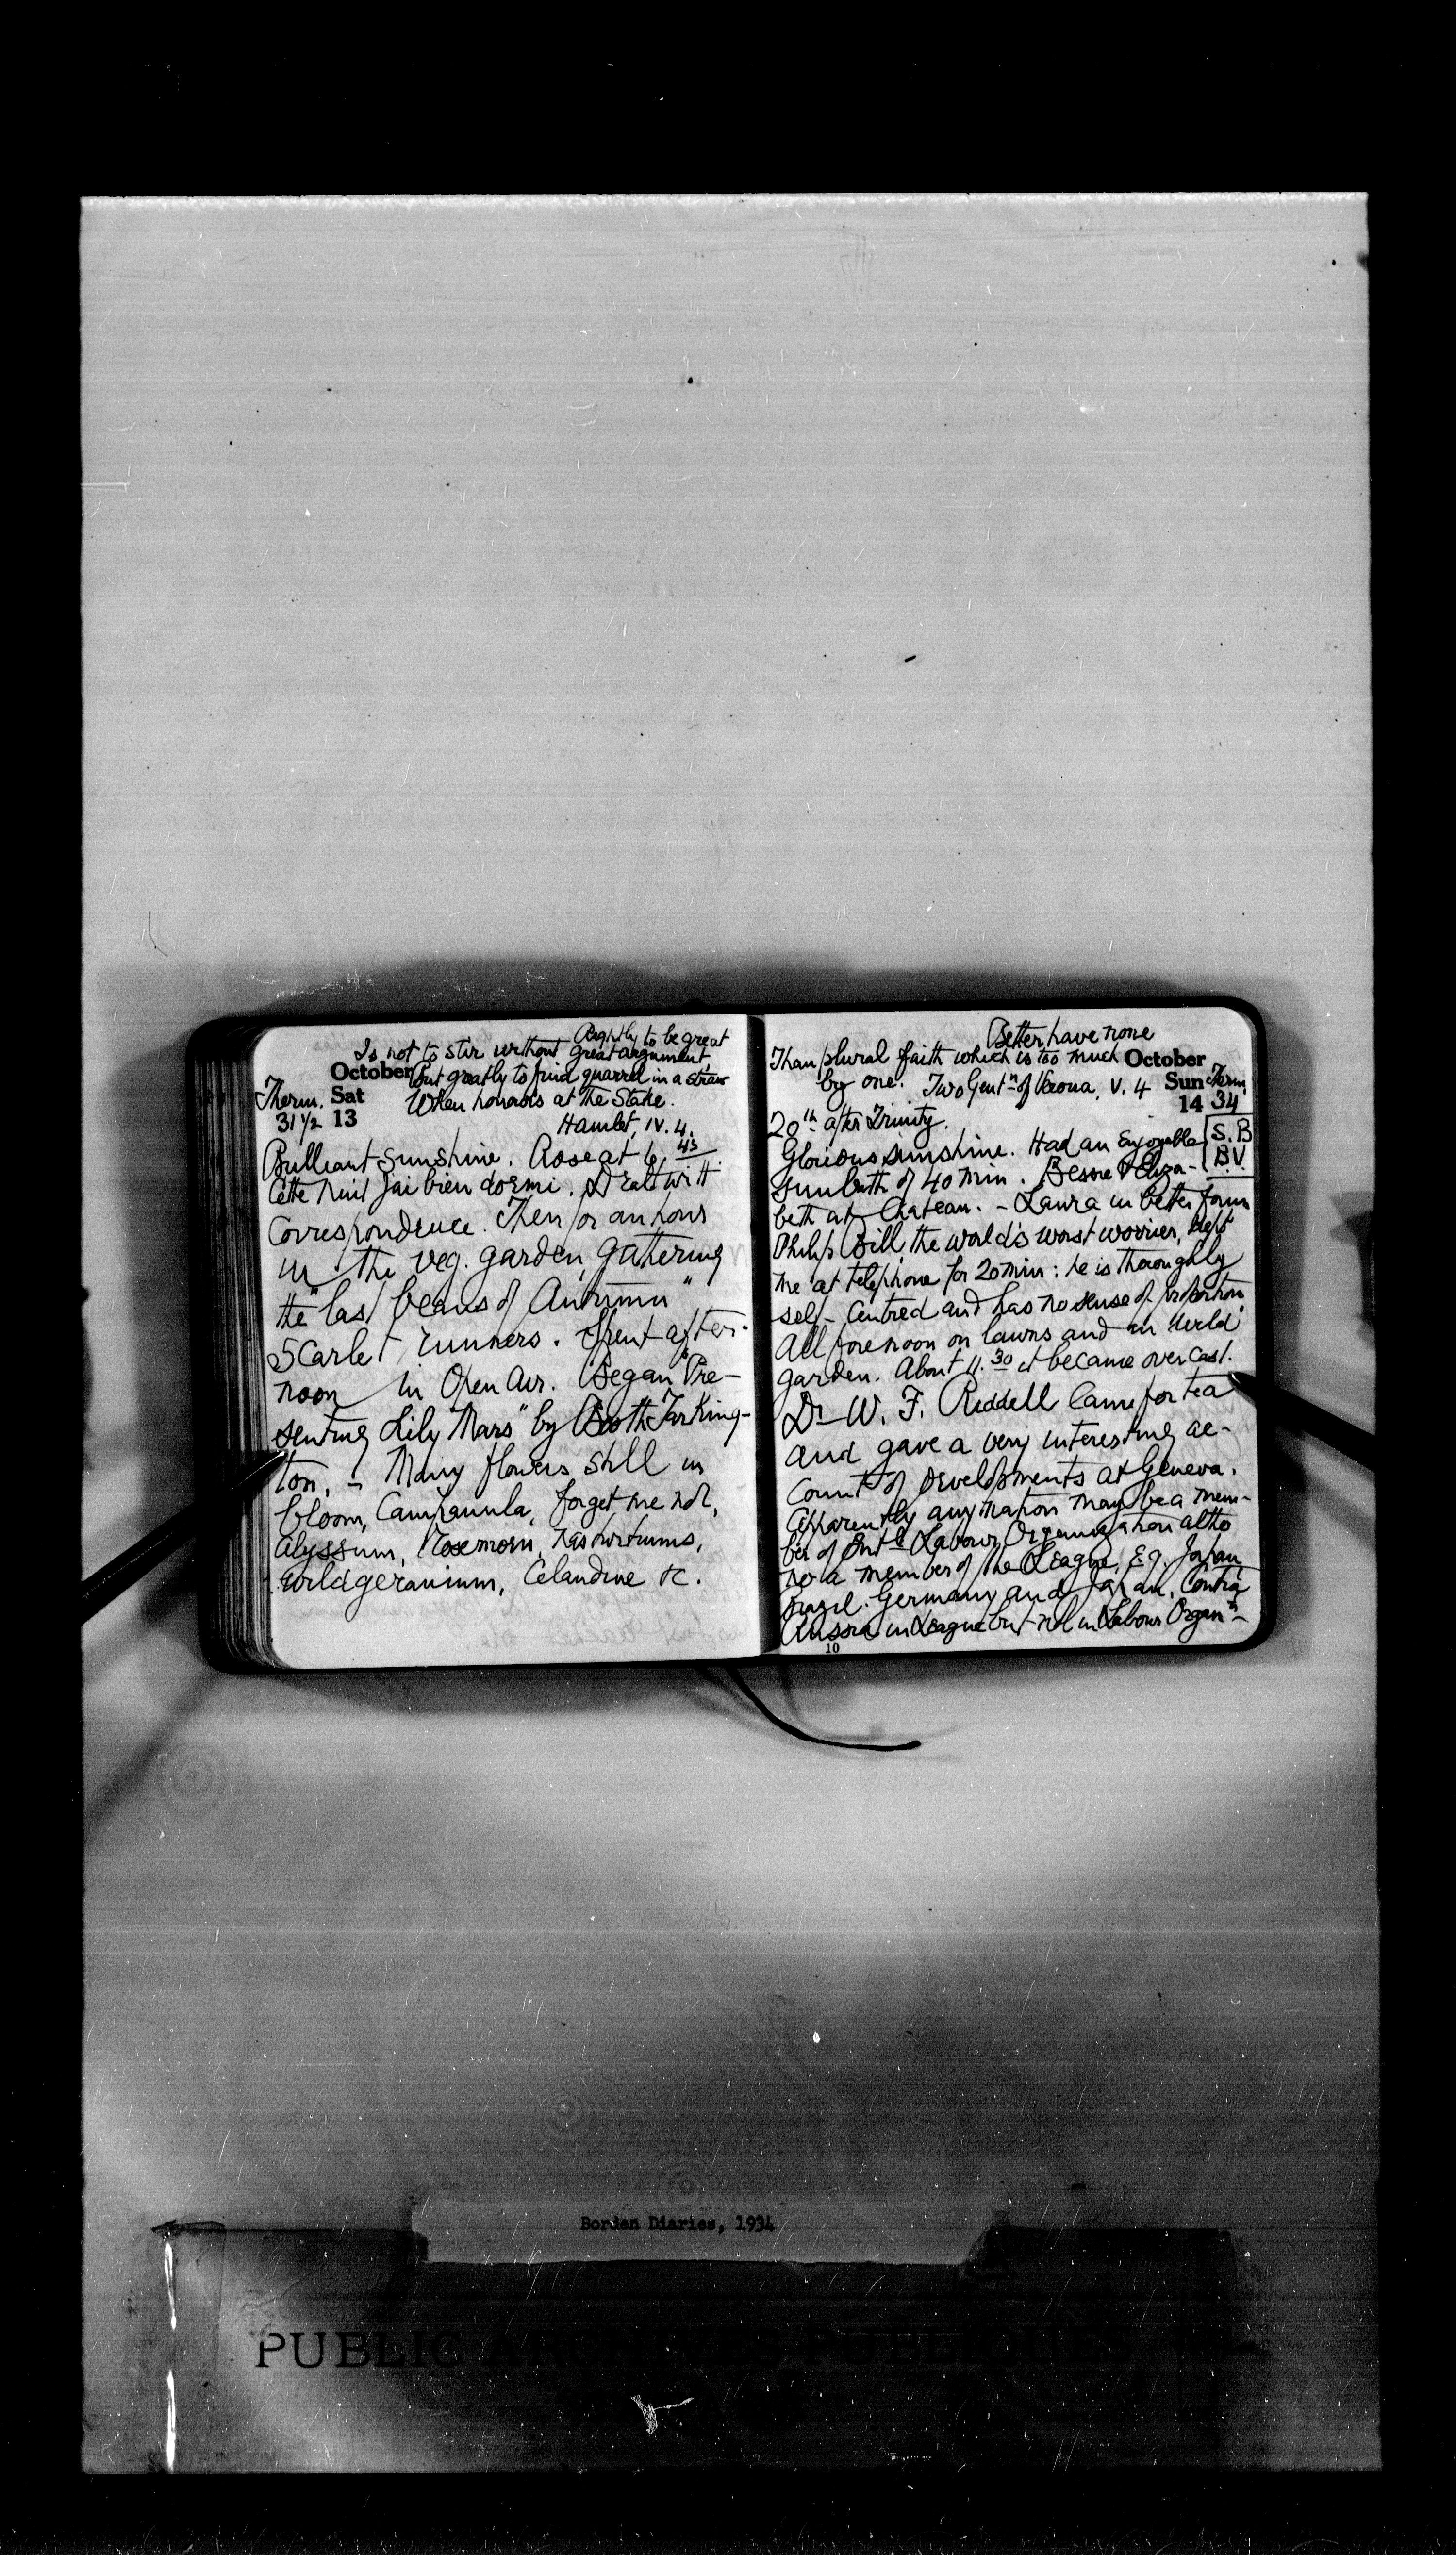 Rightly to be great
Is not to stir without great argument,
October But greatly to find quarrel in a straw
Therm. Sat When honour's at the Stake.
31 1/2 13 Hamlet, IV. 4.
Brilliant Sunshine. Rose at 6.45
Cette nuit j'ai bien dormi. Dealt with
Correspondence. Then for an hour
in the veg. garden, gathering
the "last beans of Autumn"
Scarlet runners. Spent after-
noon in Open Air. Began "Pre-
senting Lily Mars" by Booth Tarking-
ton. – Many flowers still in
bloom, Campanula, forget me not,
alyssum, Rosemorn, nasturtiums,
wild geranium, Celandine &c.
Better have none
Than plural faith which is too much October
by one. Two Gentn of Verona, V. 4 Sun Therm
14 34
20th after Trinity.
Glorious sunshine. Had an enjoyable S.B
sunbath of 40 min. Bessie & Eliza- B.V.
beth at Chateau. – Laura in better form
Philip Bill, the world's worst worrier, kept
me at telephone for 20 min: he is thoroughly
self-centred and has no sense of proportion
All forenoon on lawns and in wild
garden. About 11.30 it became overcast.
Dr W. F. Riddell came for tea
and gave a very interesting ac-
count of developments at Geneva.
Apparently any nation may be a mem-
ber of Intl Labour Organization altho
not a member of the League. E.g. Japan
Brazil. Germany and Japan. Contra
Russia in League but not in Labour Organn –
10
Borden Diaries, 1934
PUBLIC ARCHIVES PUBLIQUES